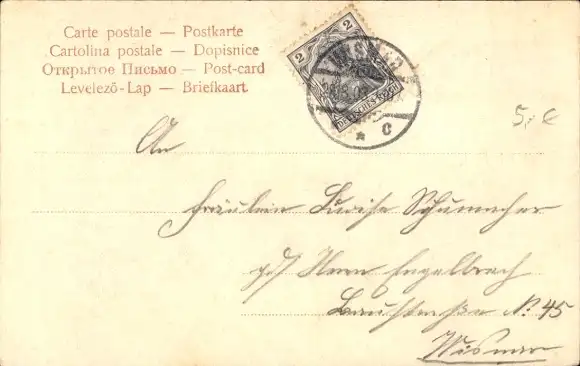 Carte postale — Postkarte
Cartolina postale — Dopisnice
Открытое Письмо — Post-card
Levelező-Lap — Briefkaart
2 2
DEUTSCHES REICH
WISMAR
* c
5,- €
An
Fräulein Luise Schumacher
p/ Herrn Engelbrech
Baustraße N: 45
Wismar